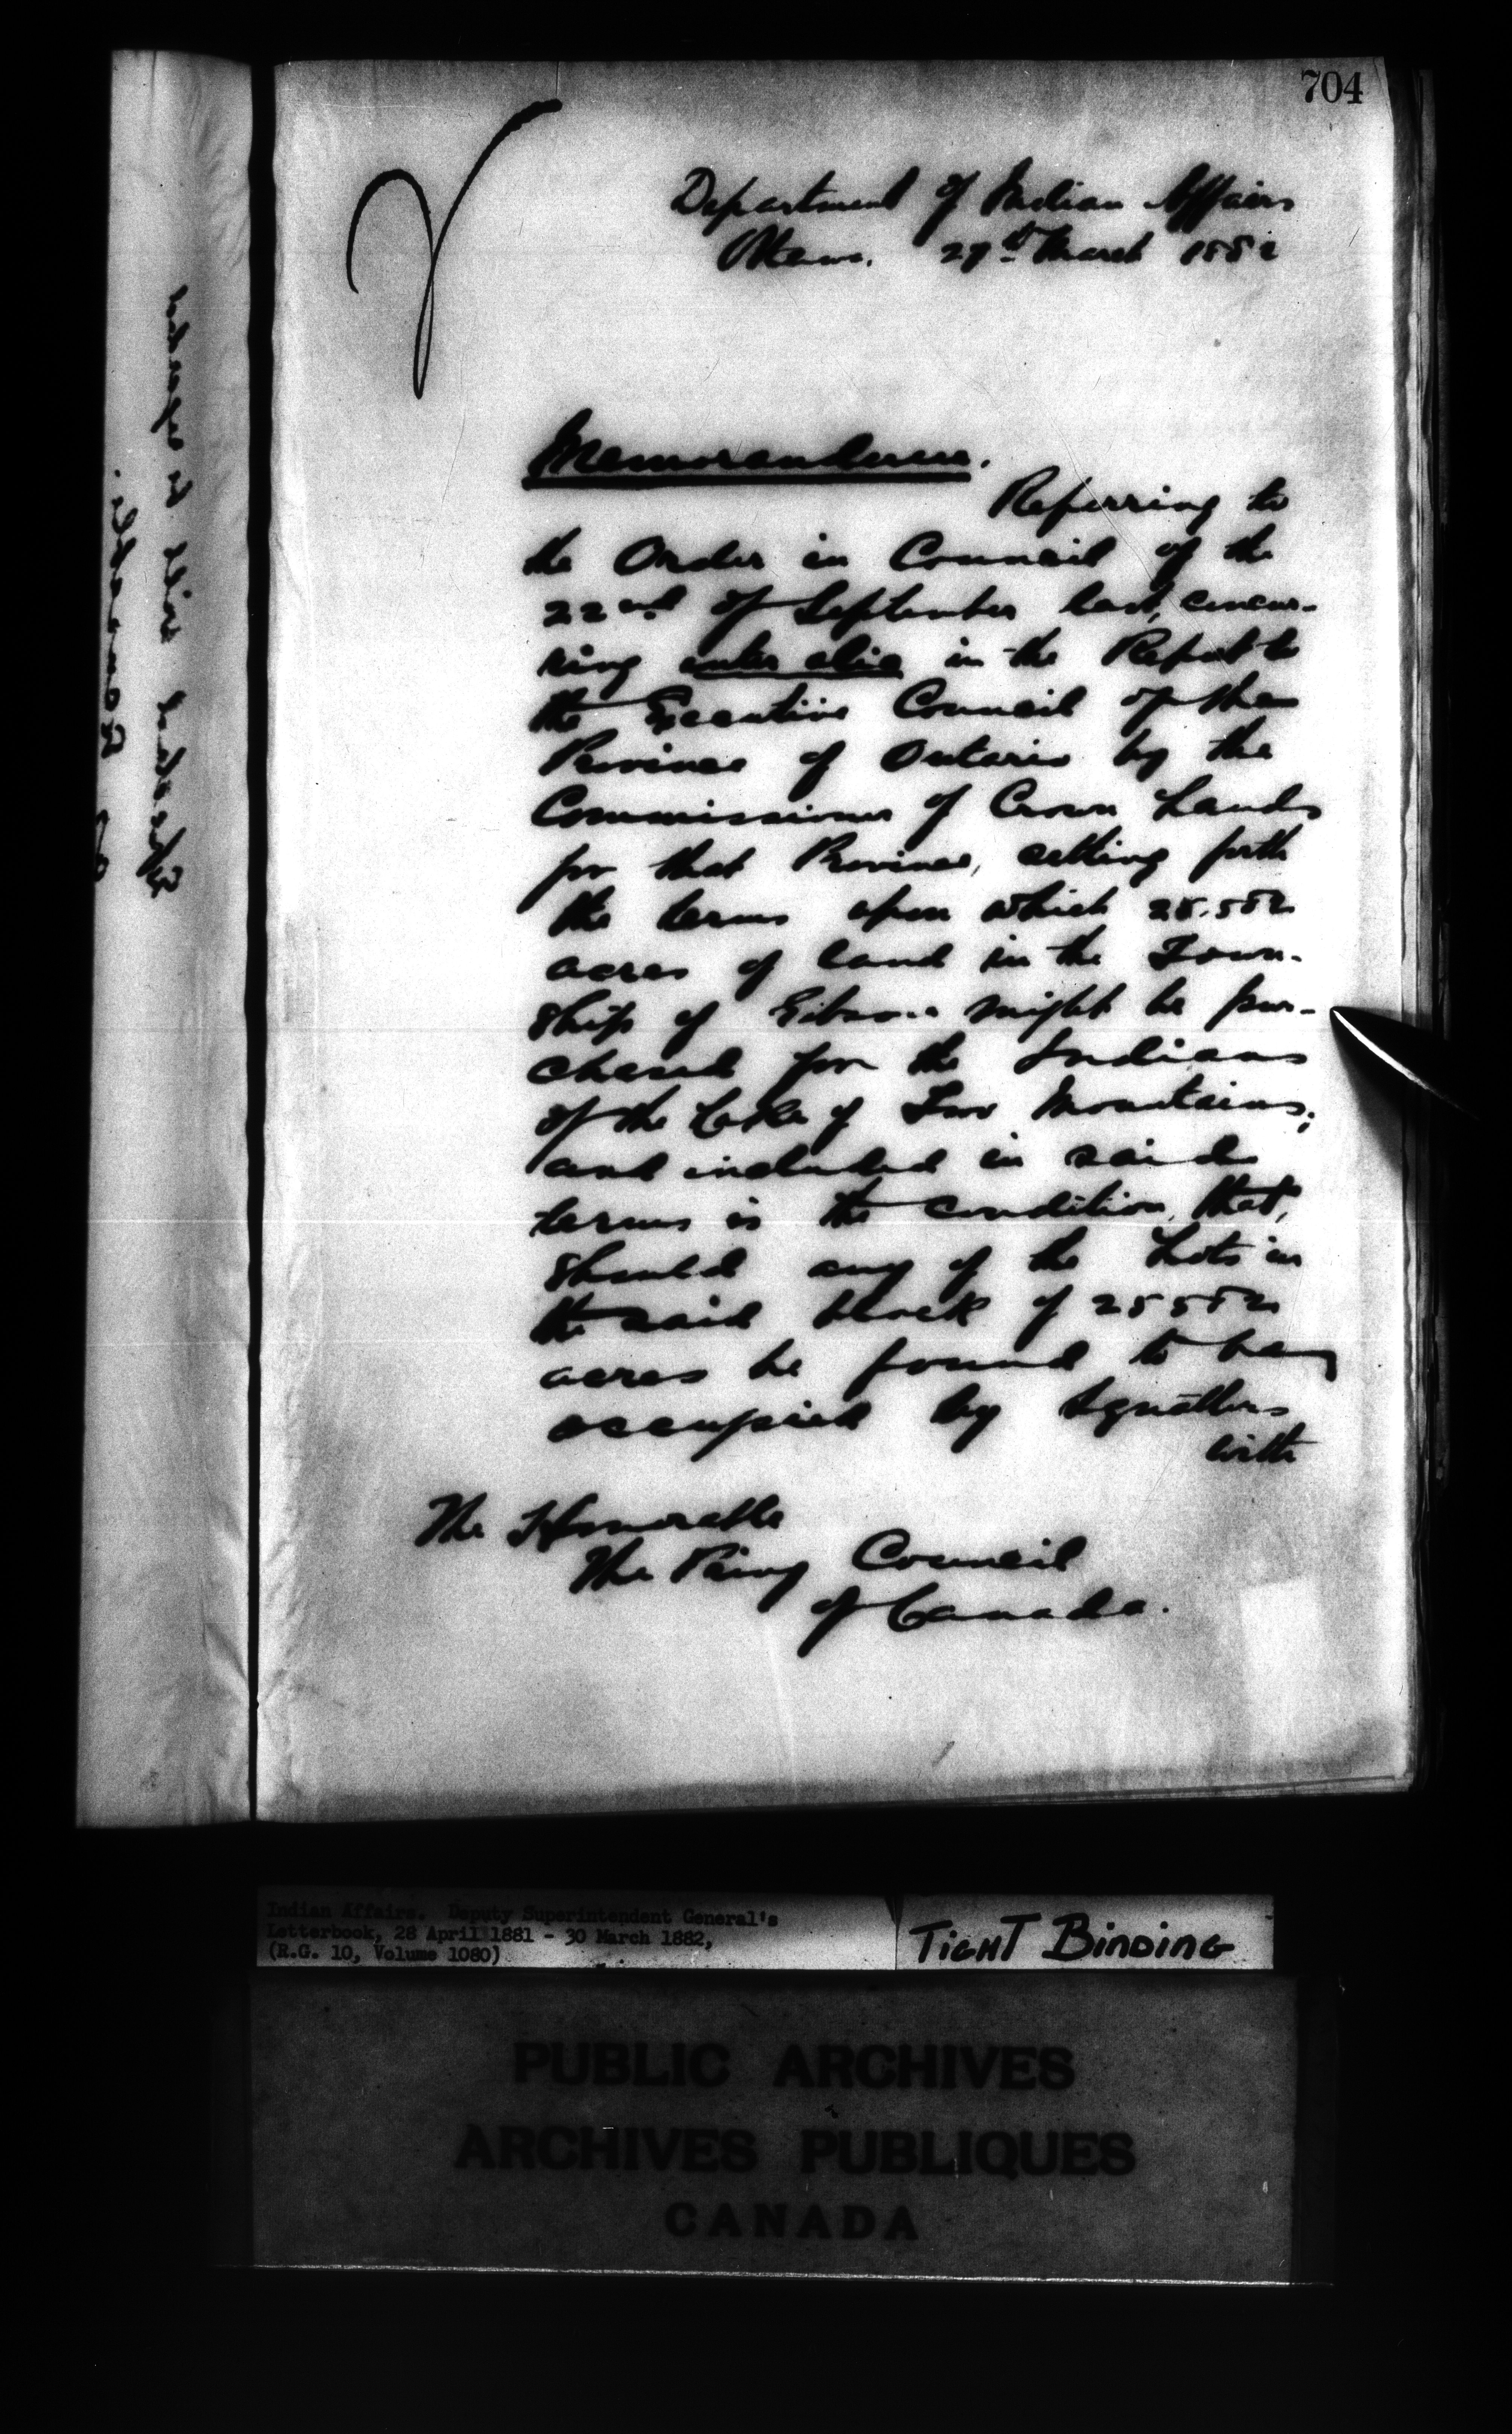 704
Department of Indian Affairs
Ottawa. 29th March 1882
Memorandum.
Referring to
the Order in Council of the
22nd of September last, concur-
ring inter alia in the Report to
the Executive Council of the
Province of Ontario by the
Commissioner of Crown Lands
for that Province, setting forth
the terms upon which 25.582
acres of land in the Town-
ship of Gibson might be pur-
chased for the Indians
of the Lake of Two Mountains;
and included in said
terms is the condition, that,
should any of the Lots in
the said block of 25582
acres be found to be
occupied by Squatters
with
The Honorable
The Privy Council
of Canada.
Indian Affairs. Deputy Superintendent General's
Letterbook, 28 April 1881 - 30 March 1882,
(R.G. 10, Volume 1080)
TIGHT BINDING
PUBLIC ARCHIVES
ARCHIVES PUBLIQUES
CANADA